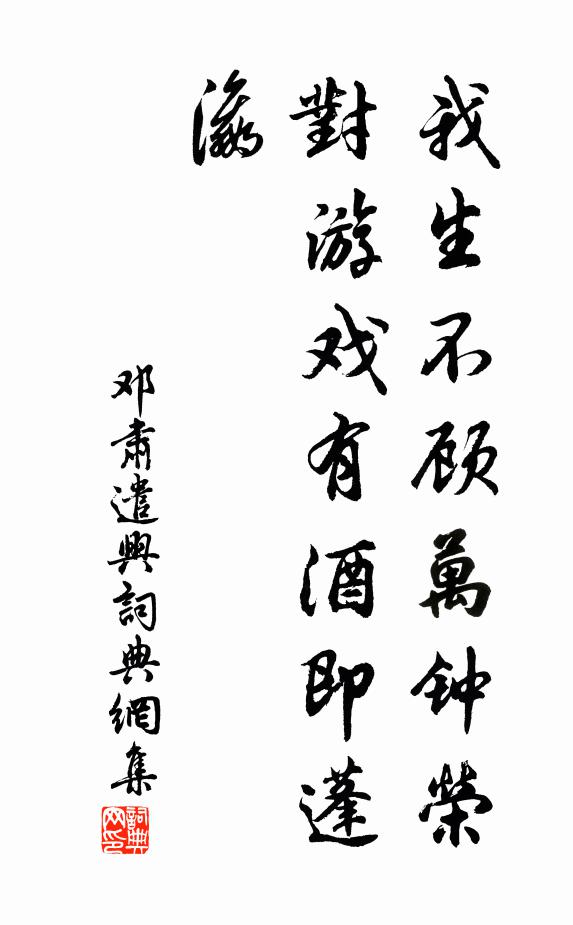 我生不顾萬钟榮
對游戏有酒即蓬
瀛
邓肅遣興詞典網集
詞典网印